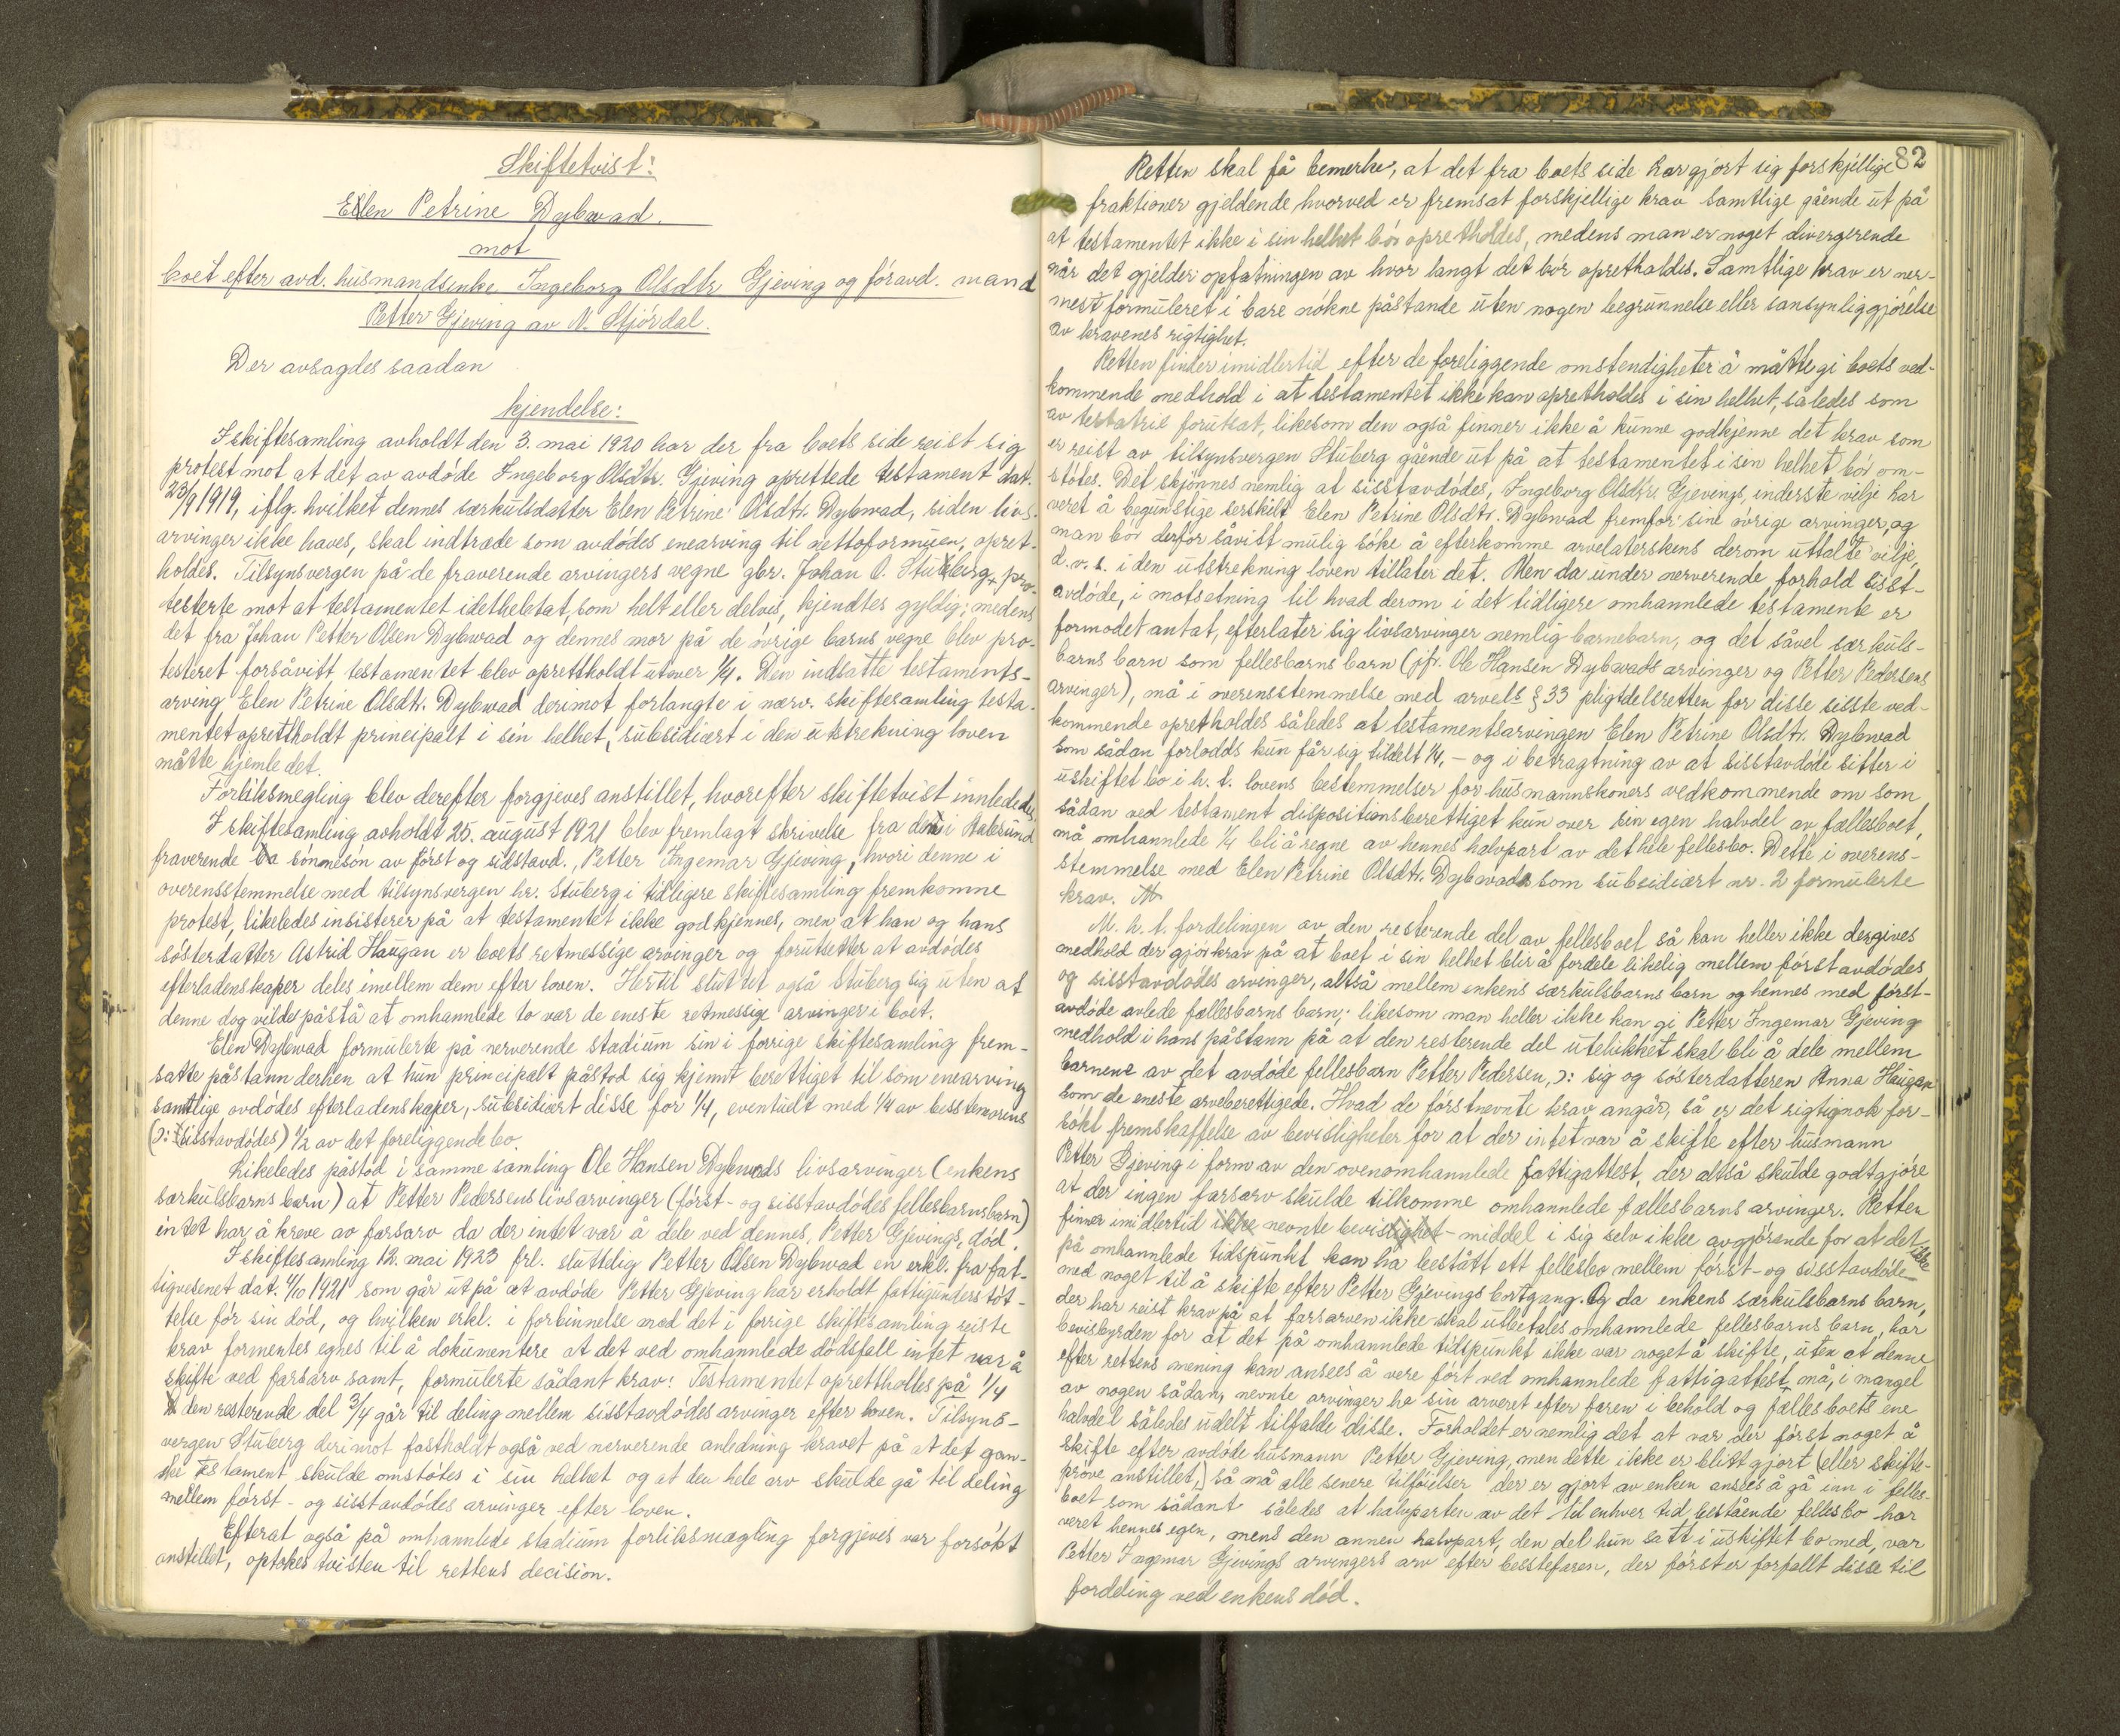 Skiftetvist:
Elen Petrine Dybwad.
mot
boet efter avd. husmandsenke Ingeborg Olsdtr Gjeving og föravd. mand
Petter Gjeving av N. Stjördal.
Der avsagdes saadan
kjendelse:
I skiftesamling avholdt den 3. mai 1920 har der fra boets side reist sig
protest mot at det av avdöde Ingeborg Olsdtr. Gjeving oprettede testament dat.
23/9 1919, iflg. hvilket dennes særkulsdatter Elen Petrine Olsdtr. Dybwad, siden livs-
arvinger ikke haves, skal indtræde som avdödes enearving til nettoformuen, opret-
holdes. Tilsynsvergen på de fraverende arvingers vegne gbr. Johan O. Stuberg, pro-
testerte mot at testamentet idetheletat, som helt eller delvis, kjendtes gyldig; medens
det fra Johan Petter Olsen Dybwad og dennes mor på de övrige barns vegne blev pro-
testeret forsåvitt testamentet blev oprettholdt utover 1/4. Den indsatte testaments-
arving Elen Petrine Olsdtr. Dybwad derimot forlangte i nærv. skiftesamling testa-
mentet oprettholdt principalt i sin helhet, subsidiært i den utstrekning loven
måtte hjemle det.
Forliksmegling blev derefter forgjeves anstillet, hvorefter skiftetvist innlededes.
I skiftesamling avholdt 25. august 1921 blev fremlagt skrivelse fra den i
fraverende sönnesön av först og sidstavd., Petter Ingemar Gjeving, hvori denne i
overensstemmelse med tilsynsvergen hr. Stuberg i tidligere skiftesamling fremkomne
protest, likeledes insisterer på at testamentet ikke godkjennes, men at han og hans
sösterdatter Astrid Haugan er boets retmessige arvinger og forutsetter at avdödes
efterladenskaper deles imellem dem efter loven. Hertil sluttet også Stuberg sig uten at
denne dog vilde påstå at omhannlede to var de eneste retmessige arvinger i boet.
Elen Dybwad formulerte på nerverende stadium sin i forrige skiftesamling frem-
satte påstann derhen at hun principalt påstod sig kjennt berettiget til som enearving
samtlige avdödes efterladenskaper, subsidiært disse for 1/4, eventudt med 1/4 av besstemorens
(ɔ: sisstavdödes) 1/2 av det foreliggende bo.
Likeledes påstod i samme samling Ole Hansen Dybwads livsarvinger (enkens
særkulsbarns barn) at Petter Pedersens livsarvinger (först- og sisstavdödes fellesbarnsbarn)
intet har å kreve av farsarv da der intet var å dele ved dennes, Petter Gjevings, död.
I skiftesamling 12. mai 1923 frl. sluttelig Petter Olsen Dybwad en erkl. fra fat-
tigvesenet dat. 4/10 1921 som går ut på at avdöde Petter Gjeving har erholdt fattigunderstöt-
telse för sin död, og hvilken erkl. i forbinnelse med det i forrige skiftesamling reiste
krav formentes egnes til å dokumentere at det ved omhannlede dödsfall intet var å
skifte ved farsarv samt, formulerte sådant krav: Testamentet oprettholles på 1/4
den resterende del 3/4 går til deling mellem sisstavdödes arvinger efter loven. Tilsyns-
vergen Stuberg derimot fastholdt også ved nerverende anledning kravet på at det gan-
ske testament skulde omstötes i sin helhet og at den hele arv skulde gå til deling
mellem först- og sisstavdödes arvinger efter loven.
Efterat også på omhannlede stadium forliksmægling forgjeves var forsökt
anstillet, optokes tvisten til rettens decision.
82
Retten skal få bemerke, at det fra boets side har gjort sig forskjellige
fraktioner gjeldende, hvorved er fremsat forskjellige krav samtlige gående ut på
at testamentet ikke i sin helhet bör opretholdes, medens man er noget divergerende
når det gjelder opfatningen av hvor langt det bör opretholdes. Samtlige krav er ner-
mest formuleret i bare nökne påstande uten nogen begrunnelse eller sansynliggjörelse
av kravenes rigtighet.
Retten finder imidlertid efter de foreliggende omstendigheter å måtte gi boets ved-
kommende medhold i at testamentet ikke kan opretholdes i sin helhet, således som
av testatrix forutsat, likesom den også finner ikke å kunne godkjenne det krav som
er reist av tilsynsvergen Stuberg gående ut på at testamentet i sin helhet bör om-
stötes. Det skjönnes nemlig at sisstavdödes, Ingeborg Olsdtr. Gjevengs, inderste vilje har
veret å begunstige serskilt Elen Petrine Olsdtr. Dybwad fremfor sine övrige arvinger, og
man bör derfor såvitt mulig söke å efterkomme arvelaterskens derom uttalte vilje,
d.v.s. i den utstrekning loven tillater det. Men da under nerverende forhold sisst-
avdöde, i motsetning til hvad derom i det tidligere omhannlede testamente er
formodet antat, efterlater sig livsarvinger nemlig barnebarn, og det såvel særkuls-
barns barn som fellesbarns barn (jfr. Ole Hansen Dybwads arvinger og Petter Pedersens
arvinger), må i overensstemmelse med arvels § 33 pligtdelsretten for disse sisste ved-
kommende opretholdes således at testamentsarvingen Elen Petrine Olsdtr. Dybwad
som sådan forlodds kun får sig tildelt 1/4, - og i betragtning av at sisstavdöde sitter i
uskiftet bo i h. t. lovens bestemmelser for husmannskoners vedkommende om som
sådan ved testament dispositionsberettiget kun over sin egen halvdel av fællesboet,
må omhannlede 1/4 bli å regne av hennes halvpart av det hele fellesbo. Dette i overens-
stemmelse med Elen Petrine Olsdtr. Dybwads som subsidiært nr. 2 formulerte
krav.
M. h. t. fordelingen av den resterende del av fellesboet så kan heller ikke der gives
medhold der gjör krav på at boet i sin helhet blir å fordele likelig mellem förstavdödes
og sisstavdödes arvinger, altså mellem enkens særkulsbarns barn og hennes med först-
avdöde avlede fællesbarns barn; likesom man heller ikke kan gi Petter Ingemar Gjeving
medhold i hans påstann på at den resterende del utelukket skal bli å dele mellem
barnene av det avdöde fellesbarn Petter Pedersen, ɔ: sig og sösterdatteren Anna Haugan
som de eneste arveberettigede. Hvad de förstnevnte krav angår, så er det rigtignok for-
sökt fremskaffelse av bevisligheter for at der intet var å skifte efter husmann
Petter Gjeving i form av den ovenomhannlede fattigattest, der altså skulde godtgjöre
at der ingen farsarv skulde tilkomme omhannlede fællesbarns arvinger. Retten
finner imidlertid nevnte bevis-middel i sig selv ikke avgjörende for at det ikke
på omhannlede tidspunkt kan ha bestått ett fellesbo mellem först- og sisstavdöde
med noget til å skifte efter Petter Gjevings bortgang. Og da enkens særkulsbarns barn,
der har reist krav på at farsarven ikke skal utbetales omhannlede fellesbarns barn, har
bevisbyrden for at det på omhannlede tidspunkt ikke var noget å skifte, uten at denne
efter rettens mening kan ansees å vere fört ved omhannlede fattigattest, må, i mangel
av nogen sådan, nevnte arvinger ha sin arveret efter faren i behold og fællesboets ene
halvdel således udelt tilfalde disse. Forholdet er nemlig det at var der först noget å
skifte efter avdöde husmann Petter Gjeving, men dette ikke er blitt gjort (eller skifte-
pröve anstillet,) så må alle senere tilföielser der er gjort av enken ansees å gå inn i felles-
boet som sådant således at halvparten av det til enhver tid bestående fellesbo har
veret hennes egen, mens den annen halvpart, den del hun satt i uskiftet bo med, var
Petter Ingemar Gjevings arvingers arv efter besstefaren, der först er forfallt disse til
fordeling ved enkens död.